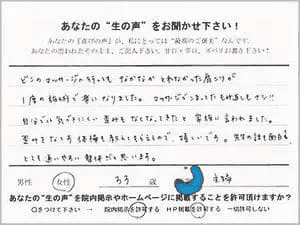 あなたの“生の声”をお聞かせ下さい！
あなたの『喜びの声』が、私にとっては“最高のご褒美”なんです。
あなたの思われたそのまま、ご記入下さい。甘口・辛口、ズバリお書き下さい！
どこのマッサージに行っても なかなか とれなかった肩こりが
1度の施術で楽になりました。マッサージでこまってた もみ返しもナシ!!
自分でも気づきにくい 歪みも なくなってきたと 家族に言われました。
歪まなくする体操も教えてもらえるので、嬉しいです。先生の話も面白く
とても通いやすい整体だと思います。
男性 女性 33 歳 主婦
あなたの“生の声”を院内掲示やホームページに掲載することを許可頂けますか？
○をつけて下さい → 院内掲示を許可する HP掲載を許可する 一切許可しない